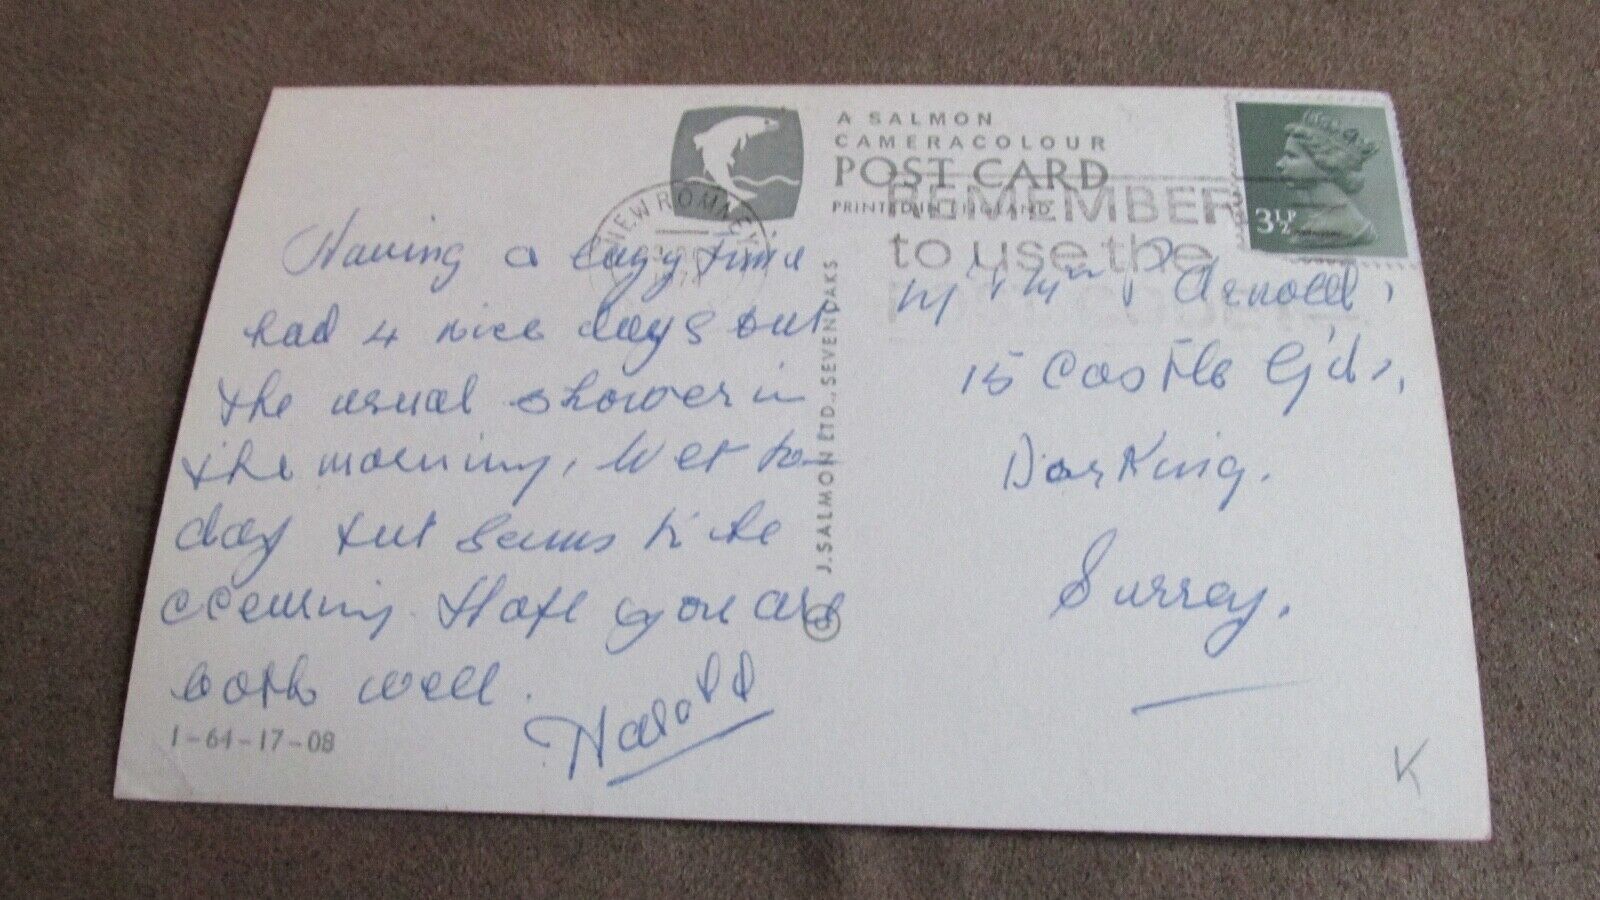 A SALMON
CAMERACOLOUR
POST CARD
PRINTED IN ENGLAND
3½P
NEW ROMNEY
REMEMBER
to use the
Having a lazy time
had 4 nice days but
the usual shower in
the morning, Wet to-
day but seems to be
clearing. Hope you are
both well.
Harold
1-64-17-08
J. SALMON LTD., SEVENOAKS
©
Mr & Mrs Arnold,
15 Castle Gds,
Dorking.
Surrey.
K